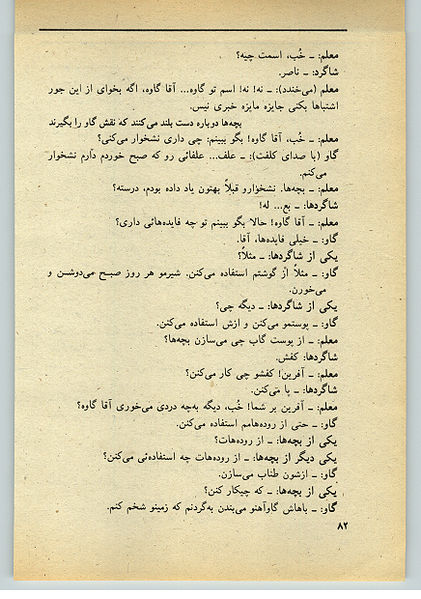 معلم: ـ خُب، اسمت چیه؟
شاگرد: ـ ناصر.
معلم (می‌خندد): ـ نه! نه! اسم تو گاوه... آقا گاوه، اگه بخوای از این جور
اشتباها بکنی جایزه مایزه خبری نیس.
بچه‌ها دوباره دست بلند می‌کنند که نقش گاو را بگیرند
معلم: ـ خُب، آقا گاوه! بگو ببینم: چی داری نشخوار می‌کنی؟
گاو (با صدای کلفت): ـ علف... علفائی رو که صبح خوردم دارم نشخوار
می‌کنم.
معلم: ـ بچه‌ها. نشخوارو قبلاً بهتون یاد داده بودم، درسته؟
شاگردها: ـ بع... له!
معلم: ـ آقا گاوه! حالا بگو ببینم تو چه فایده‌هائی داری؟
گاو: ـ خیلی فایده‌ها، آقا.
یکی از شاگردها: ـ مثلاً؟
گاو: ـ مثلاً از گوشتم استفاده می‌کنن. شیرمو هر روز صبح می‌دوشن و
می‌خورن.
یکی از شاگردها: ـ دیگه چی؟
گاو: ـ پوستمو می‌کنن و ازش استفاده می‌کنن.
معلم: ـ از پوست گاب چی می‌سازن بچه‌ها؟
شاگردها: کفش.
معلم: ـ آفرین! کفشو چی کار می‌کنن؟
شاگردها: ـ پا می‌کنن.
معلم: ـ آفرین بر شما! خُب، دیگه به‌چه دردی می‌خوری آقا گاوه؟
گاو: ـ حتی از روده‌هامم استفاده می‌کنن.
یکی از بچه‌ها: ـ از روده‌هات؟
یکی دیگر از بچه‌ها: ـ از روده‌هات چه استفاده‌ئی می‌کنن؟
گاو: ـ ازشون طناب می‌سازن.
یکی از بچه‌ها: ـ که چیکار کنن؟
گاو: ـ باهاش گاوآهنو می‌بندن به‌گردنم که زمینو شخم کنم.
۸۲